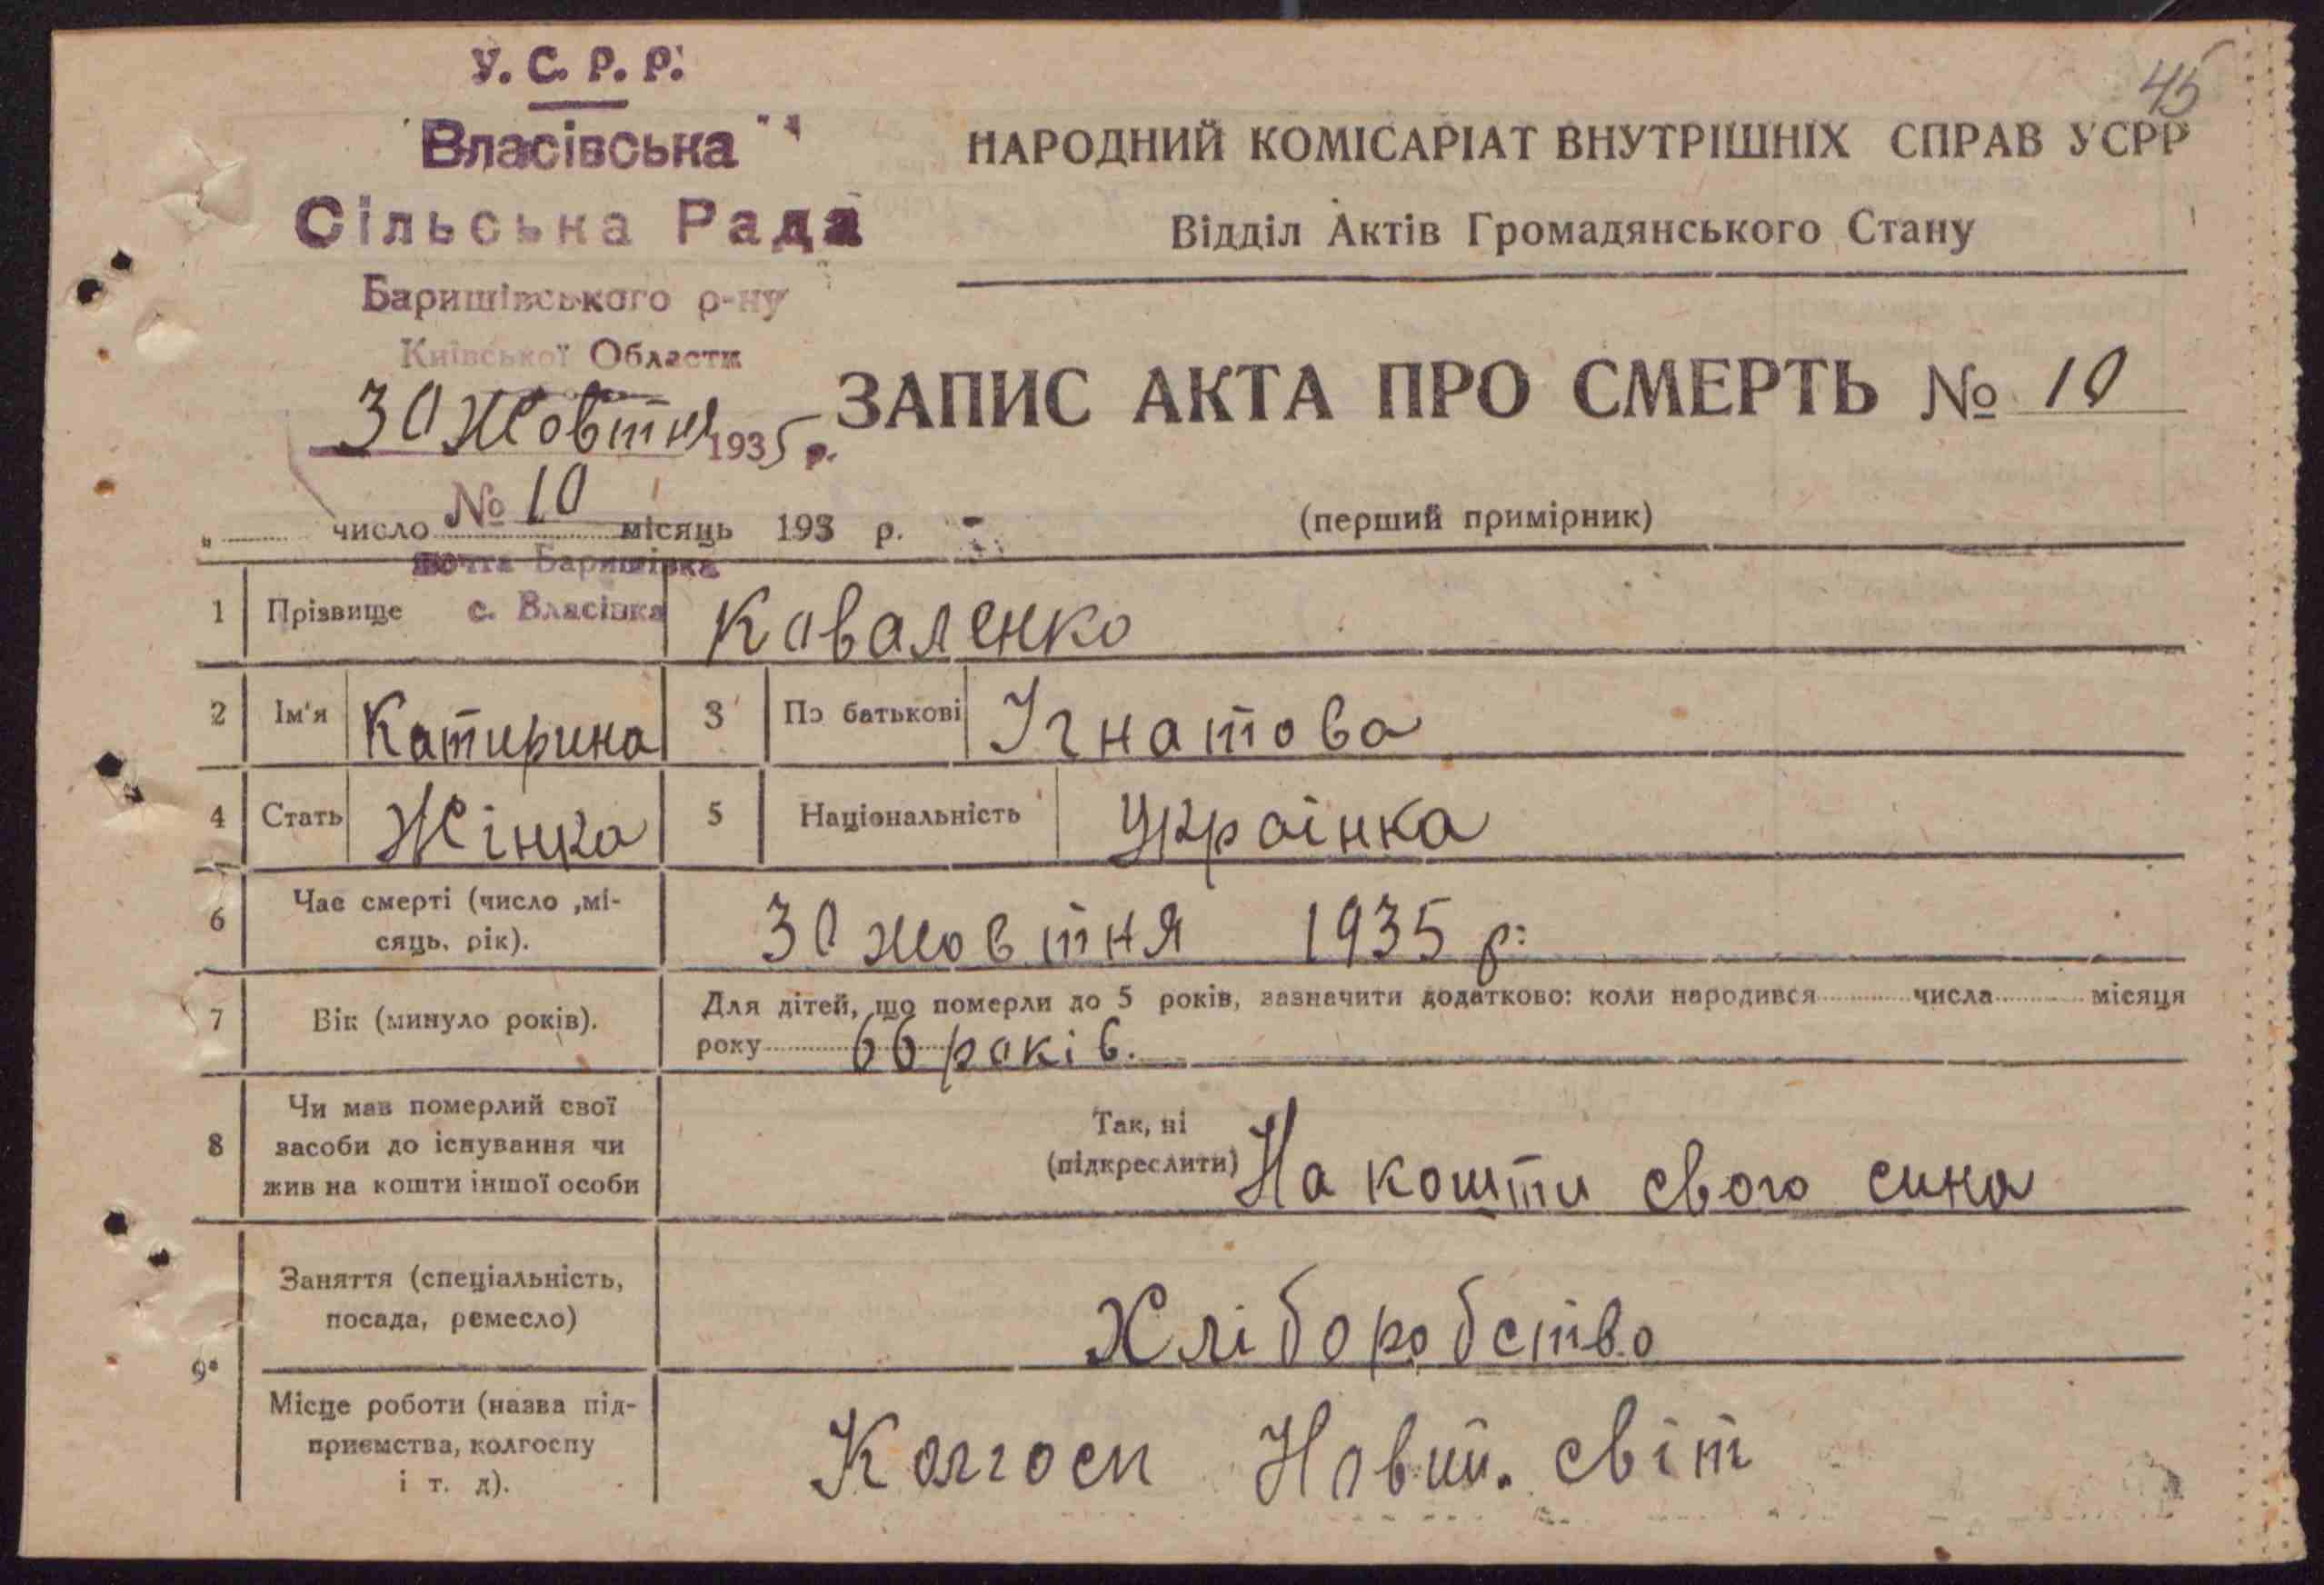 45
У. С. Р. Р.
Власівська
Сільська Рада
Баришівського р-ну
Київської Области
30 Жовтня 1935 р.
№ 10
НАРОДНИЙ КОМІСАРІАТ ВНУТРІШНІХ СПРАВ УСРР
Відділ Актів Громадянського Стану
ЗАПИС АКТА ПРО СМЕРТЬ № 10
„ число місяць 193 р.
(перший примірник)
почта Баришівка
с. Власівка
1 Прізвище Коваленко
2 Ім'я Катирина 3 По батькові Ігнатова
4 Стать Жінка 5 Національність Українка
6 Час смерті (число ,мі-
сяць, рік). 30 жовтня 1935 р.
7 Вік (минуло років). Для дітей, що померли до 5 років, зазначити додатково: коли народився числа місяця
року 66 років.
8 Чи мав померлий свої
засоби до існування чи
жив на кошти іншої особи
Так, ні
(підкреслити) На кошти свого сина
9* Заняття (спеціальність,
посада, ремесло) Хліборобство
Місце роботи (назва під-
приємства, колгоспу
і т. д). Колгосп Новий. світ